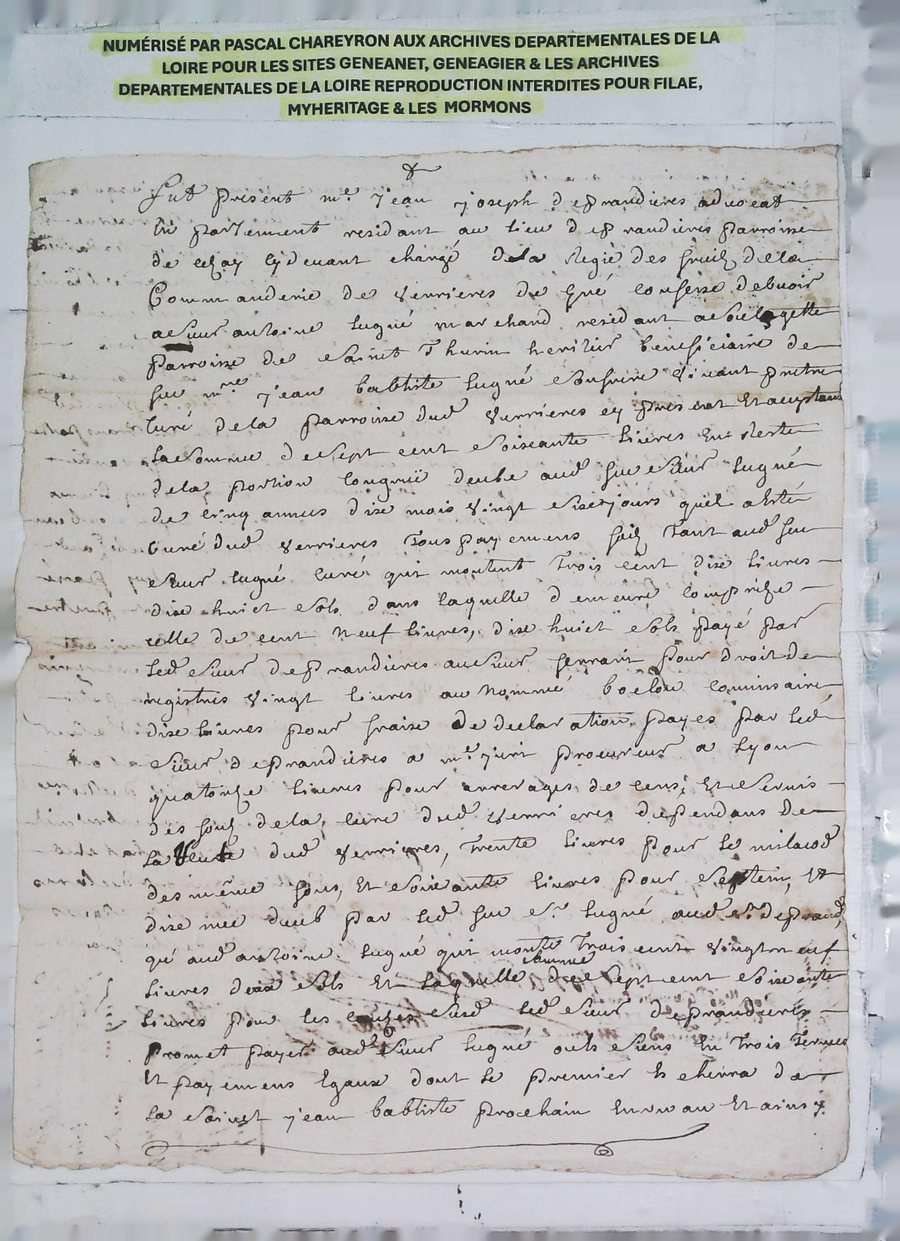 NUMÉRISÉ PAR PASCAL CHAREYRON AUX ARCHIVES DEPARTEMENTALES DE LA
LOIRE POUR LES SITES GENEANET, GENEAGIER & LES ARCHIVES
DEPARTEMENTALES DE LA LOIRE REPRODUCTION INTERDITES POUR FILAE,
MYHERITAGE & LES MORMONS
Fut present me. jean joseph deprandières advocat
en parlement residant au lieu deprandières parroisse
de cydevant chargé dela Regie des fruitz dela
Commanderie de verrieres de gré confesse debvoir
a sieur antoine lugné marchand residant a
parroisse de saint Thurin heritier beneficiaire de
feu mre jean babtiste lugné son frere vivant pretre
curé dela parroisse dud verrieres cy present et aceptant
la somme de sept cent soisante livres en reste
dela portion congruë deube aud feu sieur lugné
de cinq annees dix mois vingt jours quil a esté
curé dud verrieres Tous payemens faitz Tant aud feu
sieur lugné curé qui montent Trois cent dix livres
dix huict sols dans laquelle demeure comprise
celle de cent neuf livres, dix huict sols payé par
led sieur deprandières au sieur pour droit de
registres vingt livres au nommé commissaire
dix livres pour fraix de declaration payés par led
sieur deprandières a me. procureur a Lyon
quatorze livres pour arrerages de cens, et servis
des fonds dela cure dud verrieres dependans de
la dud verrieres, Trente livres pour le milaod
des même fons, et soixante livres pour
dixme deub par led feu sr. lugné aud sr. deprand.
qu'aud antoine lugné qui monte Trois cent vingt neuf
livres deux sols Et laquelle somme de sept cent soixante
livres pour les causes susd led sieur deprandières
promet payer aud sieur lugné ou es siens en Trois Termes
Et payemens Egaux dont le premier Echerra a
la saint jean babtiste prochain en un an Et ainsy